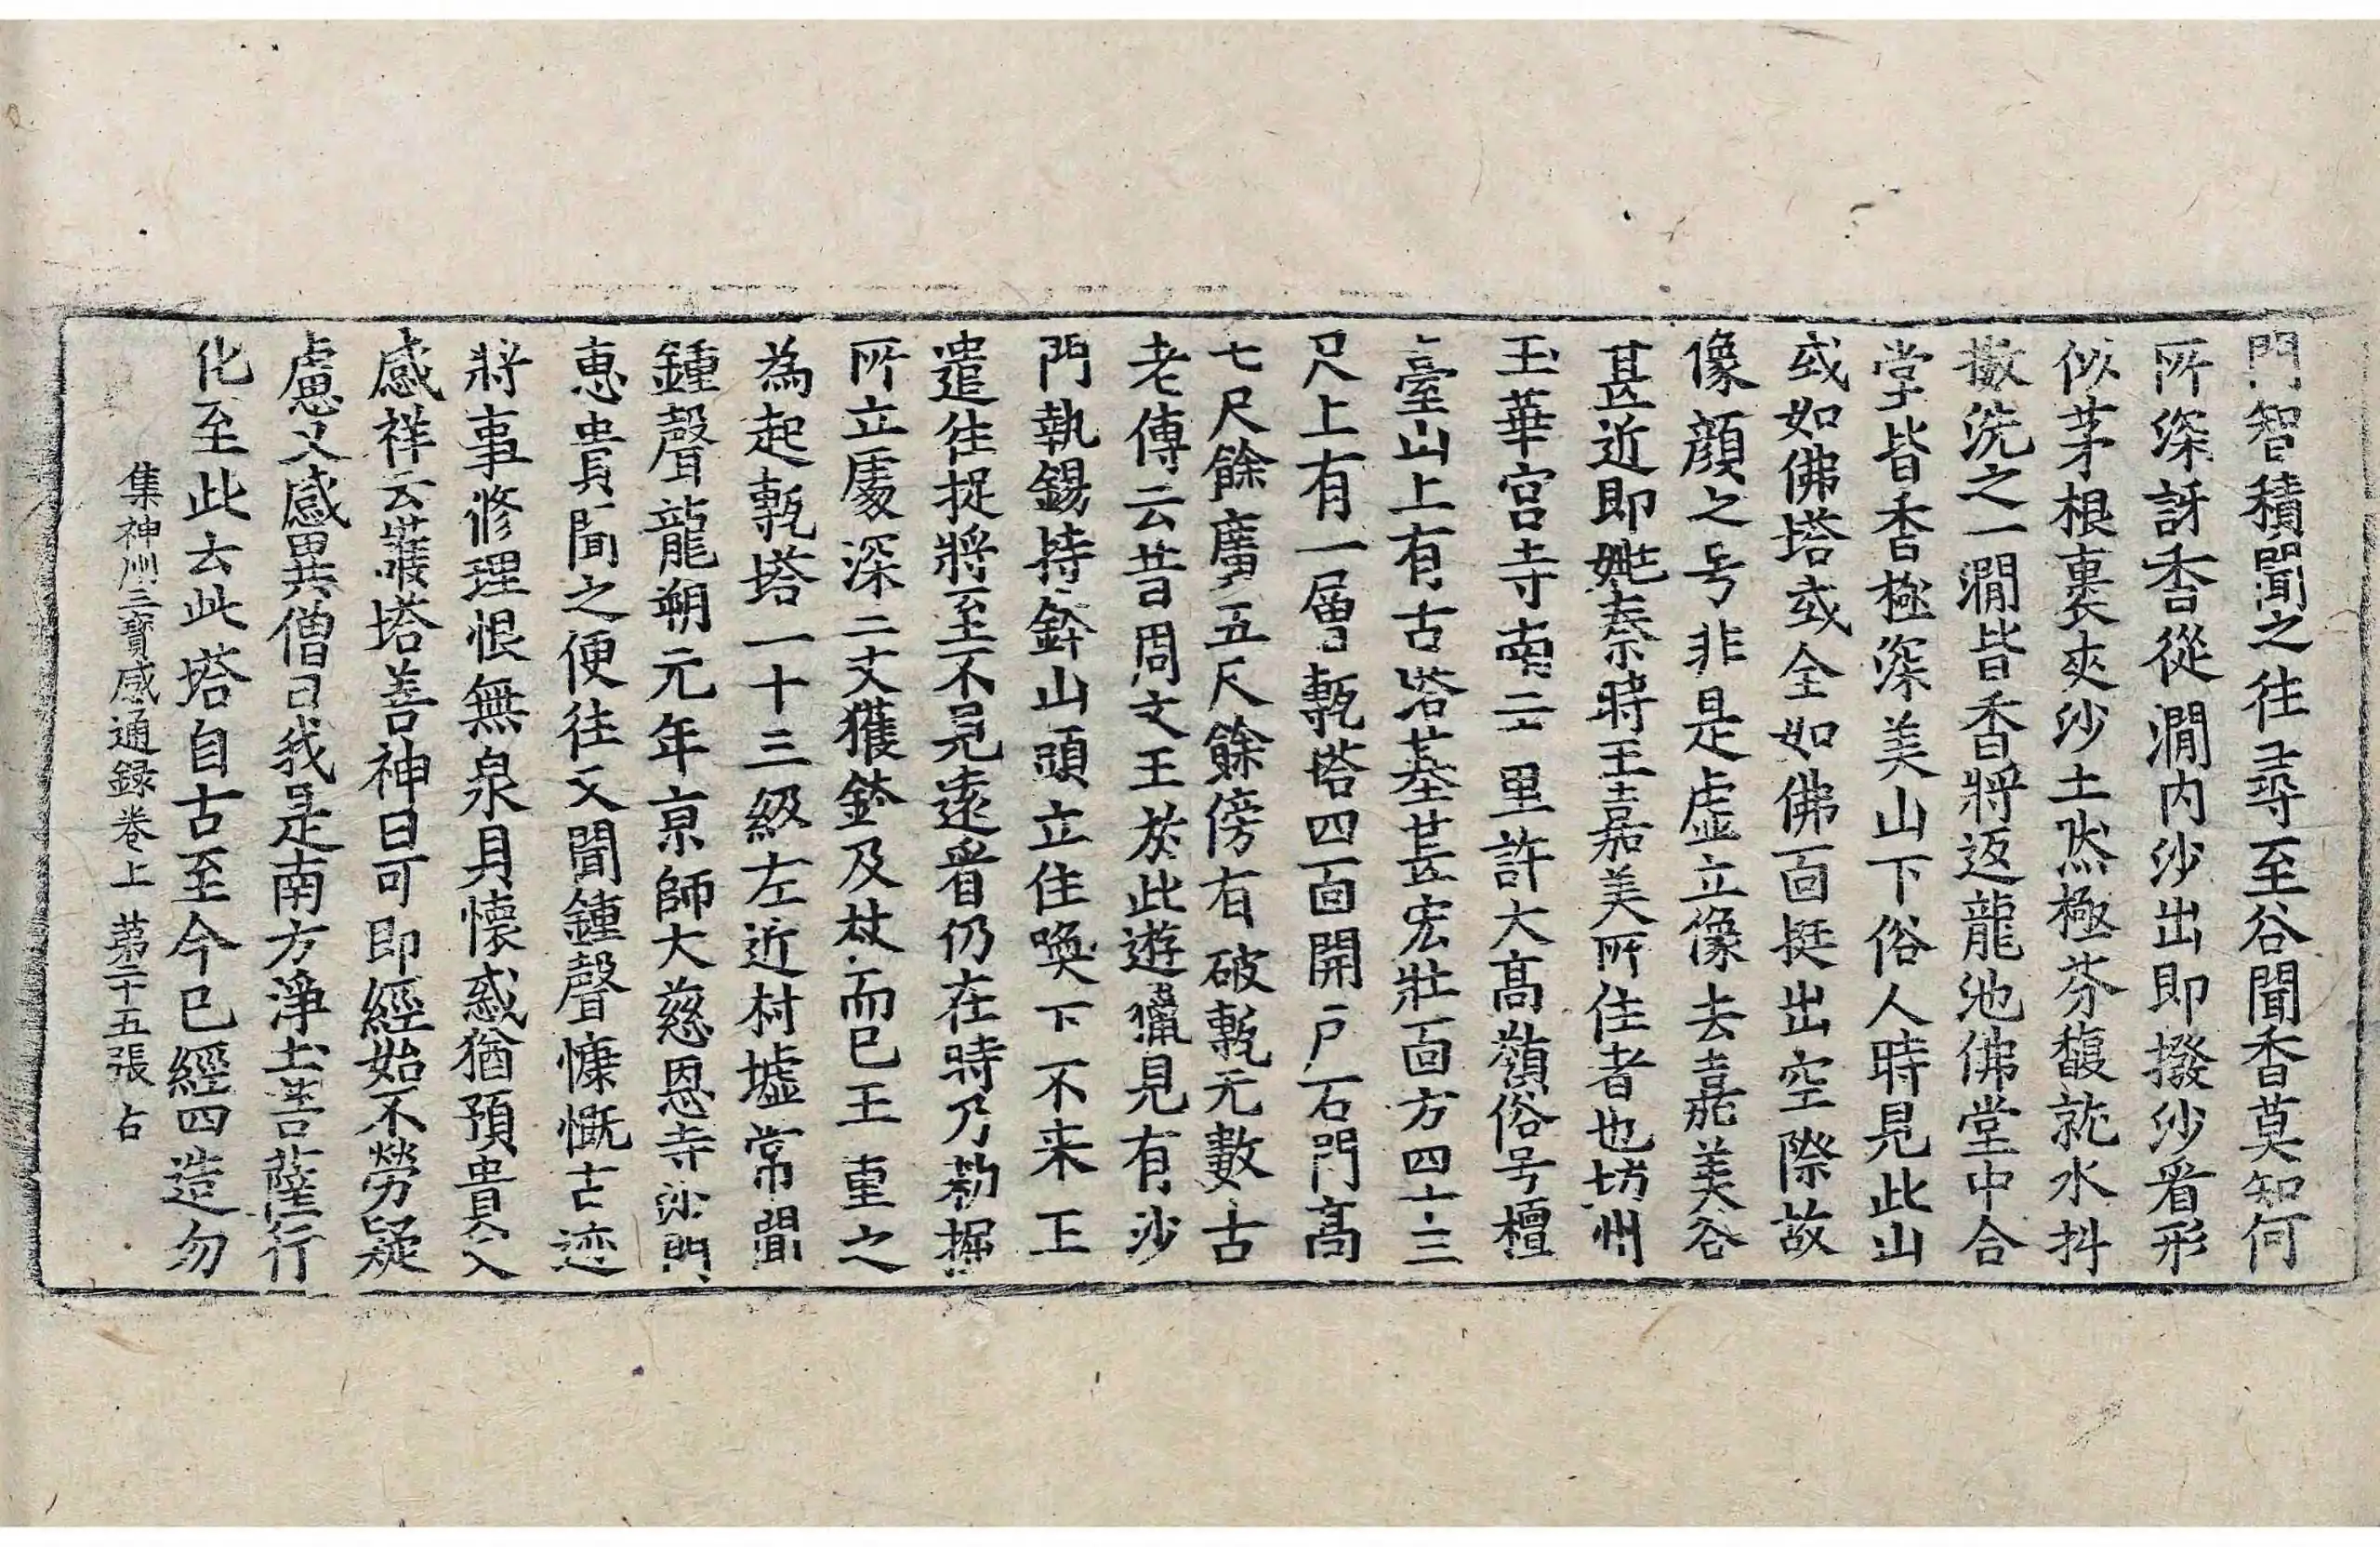 門智積聞之往尋至谷聞香莫知何
所深訝香從澗内沙出即撥沙看形
似茅根裹夾沙土然極芬馥就水抖
擻洗之一澗皆香將返龍池佛堂中合
堂皆香極深美山下俗人時見此山
或如佛塔或全如佛面挺出空際故
像顔之号非是虚立像去嘉美谷
甚近即姚秦時王嘉美所住者也坊州
玉華宮寺南二十里許大高嶺俗号檀
臺山上有古塔基甚宏壯面方四十三
尺上有一層甎塔四面開戶石門高
七尺餘廣五尺餘傍有破甎元數古
老傳云昔周文王於此遊獵見有沙
門執錫持鉢山頭立住喚下不来王
遣徃捉將至不見遠看仍在時乃勑掘
所立處深二丈獲鉢及杖而已王重之
為起甎塔一十三級左近村墟常聞
鍾聲龍朔元年京師大慈恩寺沙門
惠貴聞之便往又聞鍾聲慷慨古迹
將事修理恨無泉貝懷惑猶預貴入
感祥云護塔善神曰可即經始不勞疑
慮又感異僧曰我是南方淨土菩薩行
化至此去此塔自古至今已經四造勿
集神州三寶感通録卷上 苐二十五張 占